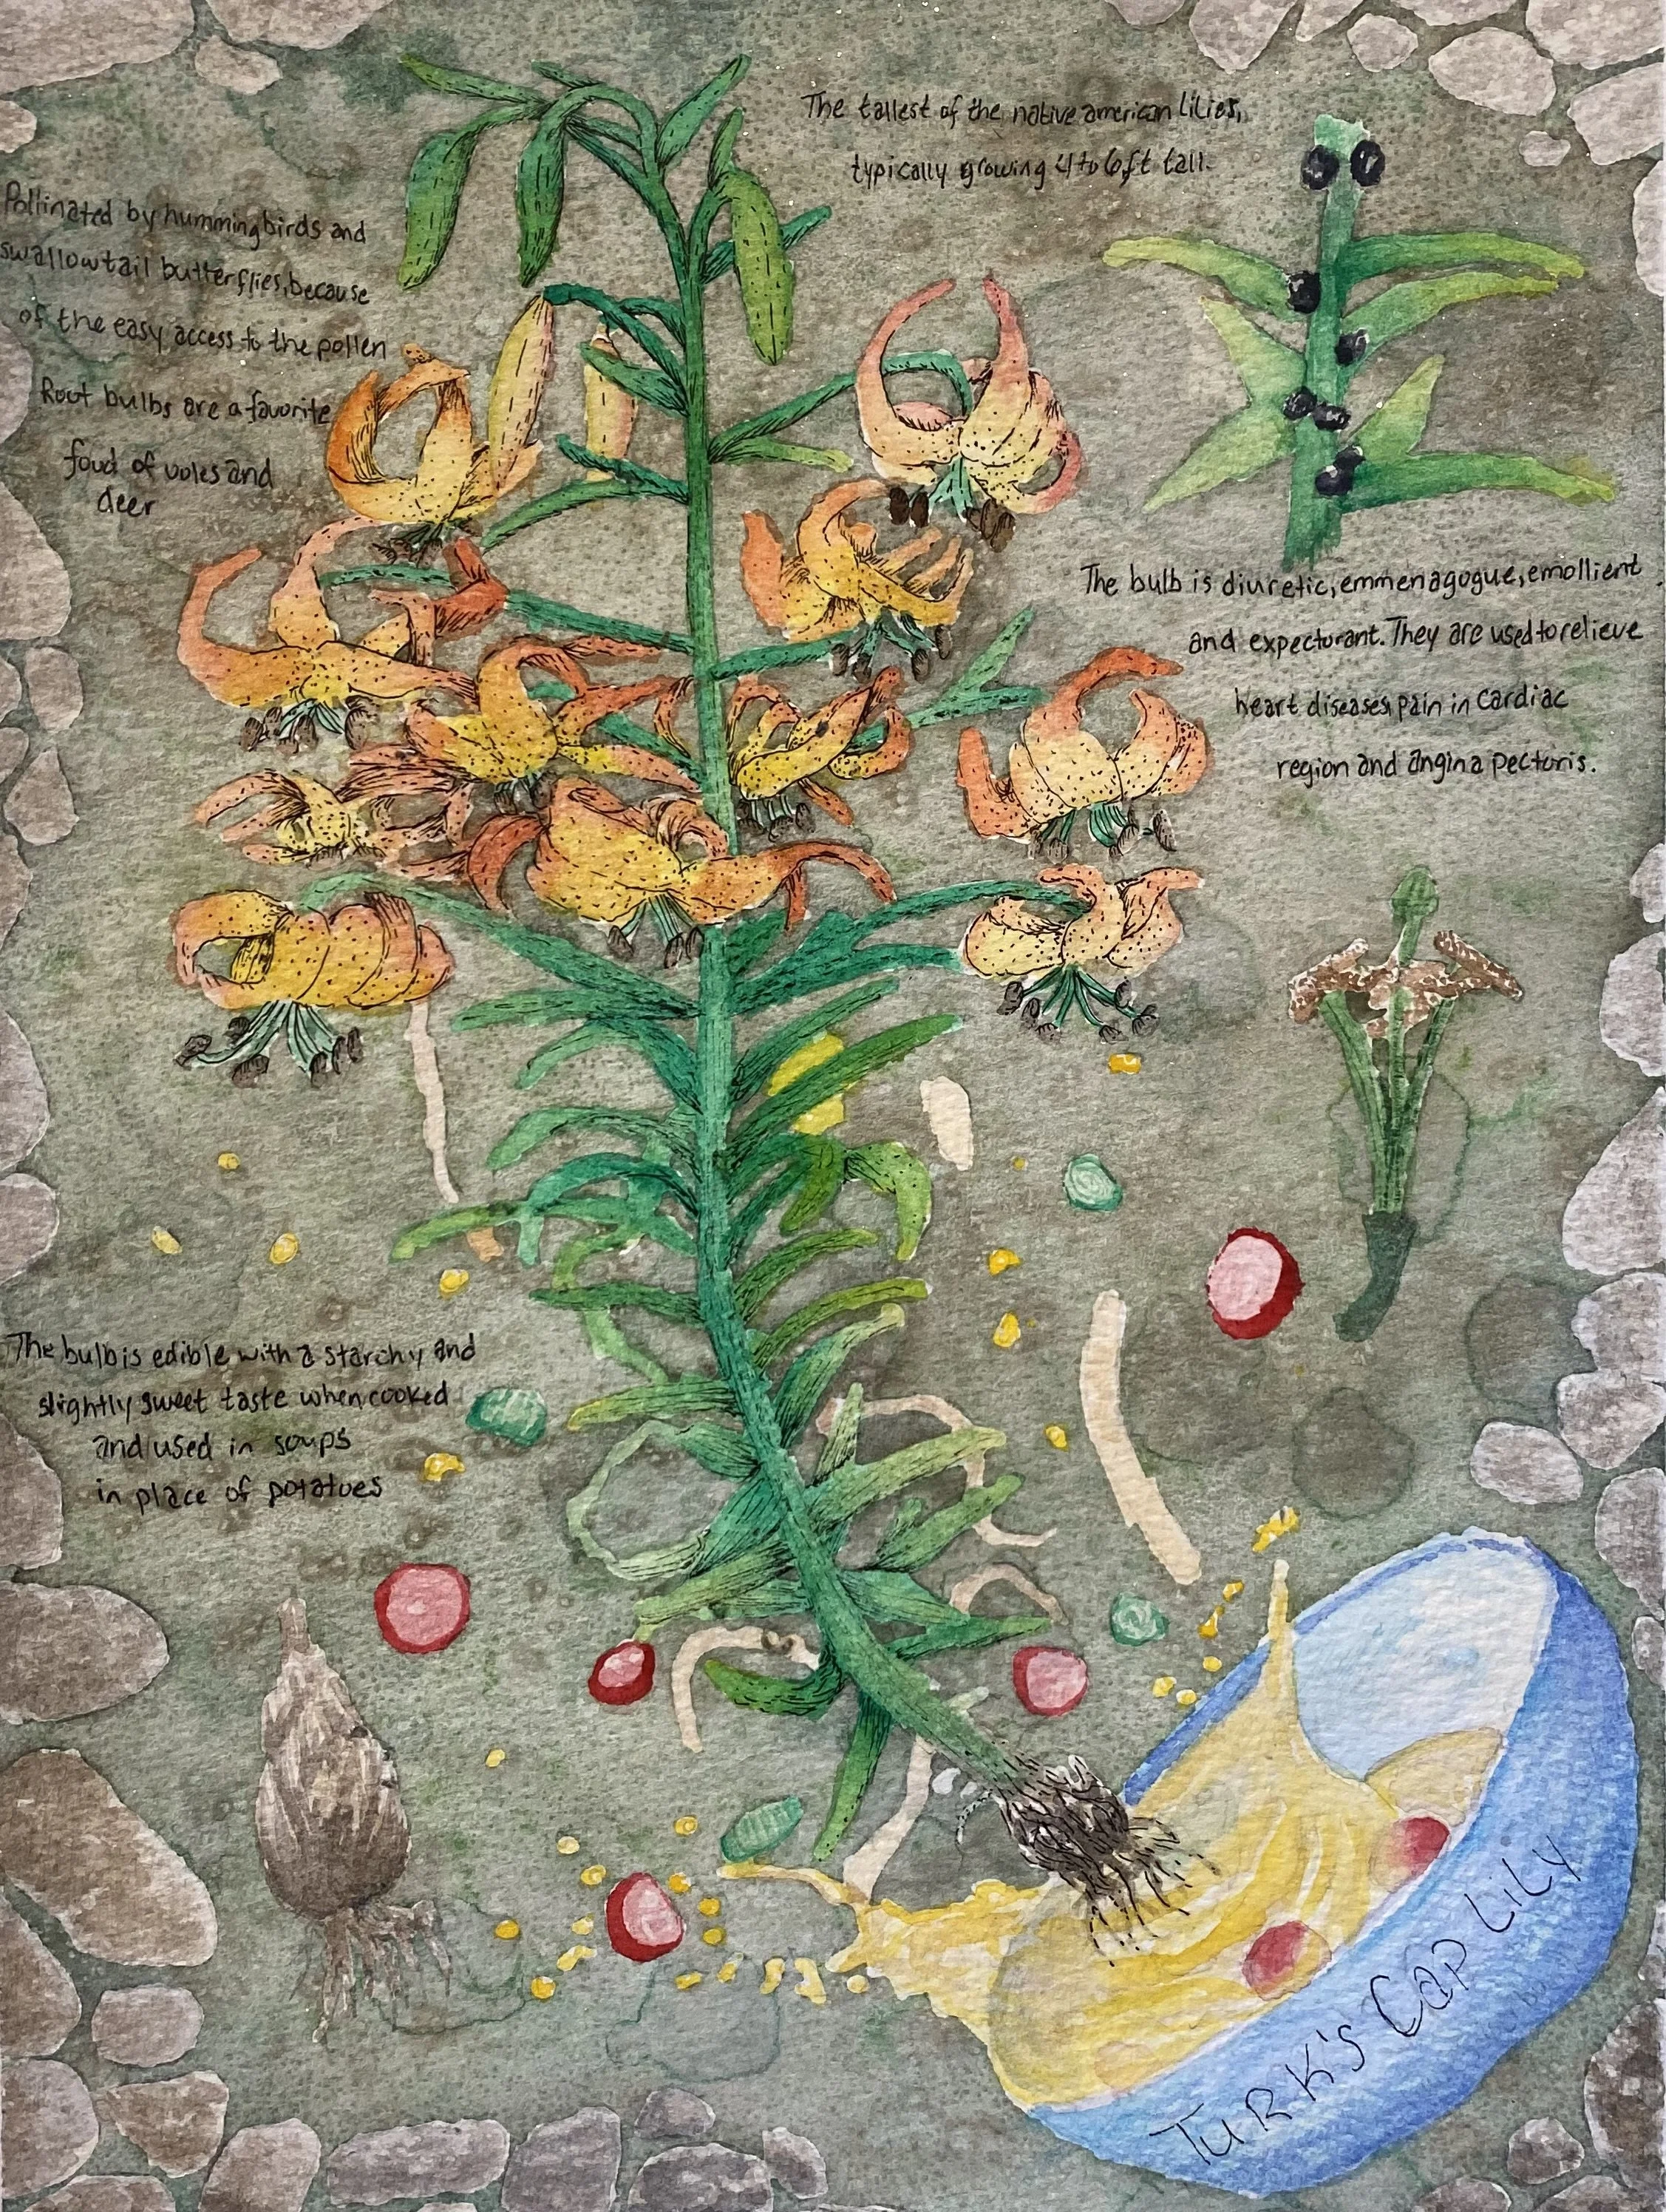 The tallest of the native american lilies,
typically growing 4 to 6ft tall.
Pollinated by hummingbirds and
swallowtail butterflies, because
of the easy access to the pollen
Root bulbs are a favorite
food of voles and
deer
The bulb is diuretic, emmenagogue, emollient
and expectorant. They are used to relieve
heart diseases, pain in cardiac
region and angina pectoris.
The bulb is edible with a starchy and
slightly sweet taste when cooked
and used in soups
in place of potatoes
TURK'S CAP LILY